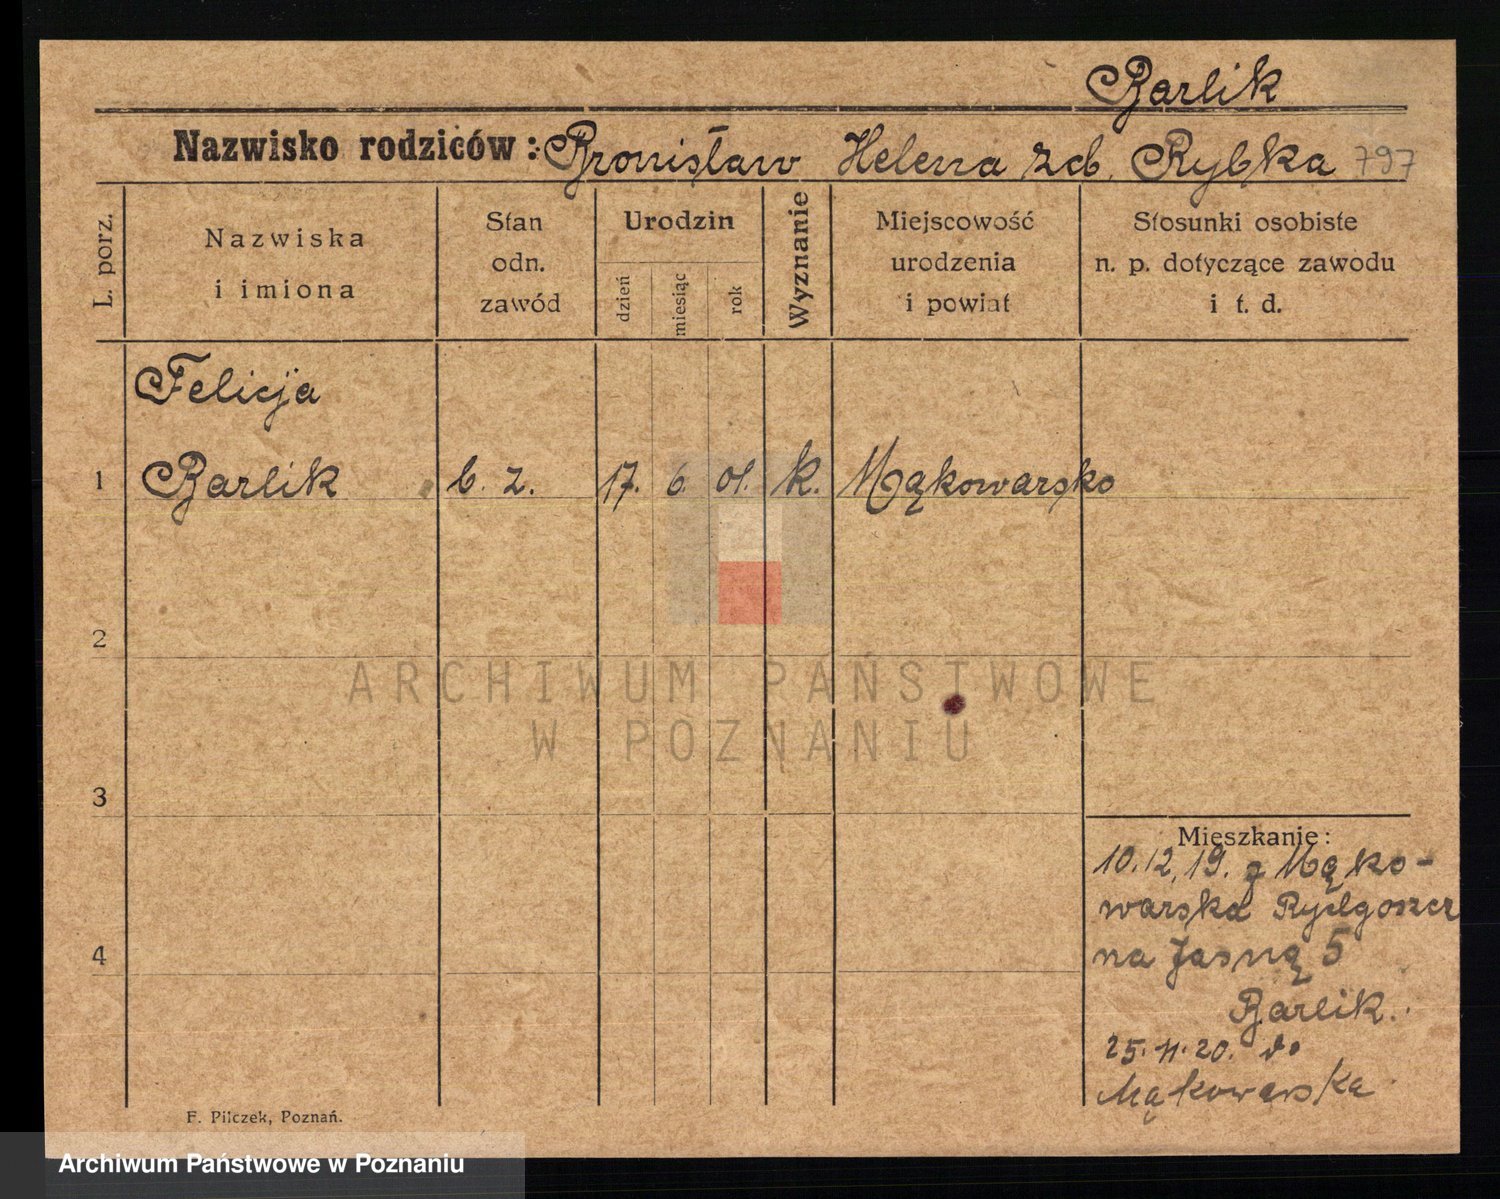 Barlik
Nazwisko rodziców: Bronisław Helena zd. Rybka 797
L. porz.
Nazwiska
i imiona
Stan
odn.
zawód
Urodzin
dzień
miesiąc
rok
Wyznanie
Miejscowość
urodzenia
i powiat
Stosunki osobiste
n. p. dotyczące zawodu
i t. d.
Felicja
1 Barlik b. z. 17. 6. 01. k. Mąkowarsko
2
ARCHIWUM PAŃSTWOWE
W POZNANIU
3
Mieszkanie:
10.12.19. z Mąko-
warska Bydgoszcz
4 na Jasną 5
Barlik.
25.11.20. do
Mąkowarska
F. Pilczek, Poznań.
Archiwum Państwowe w Poznaniu